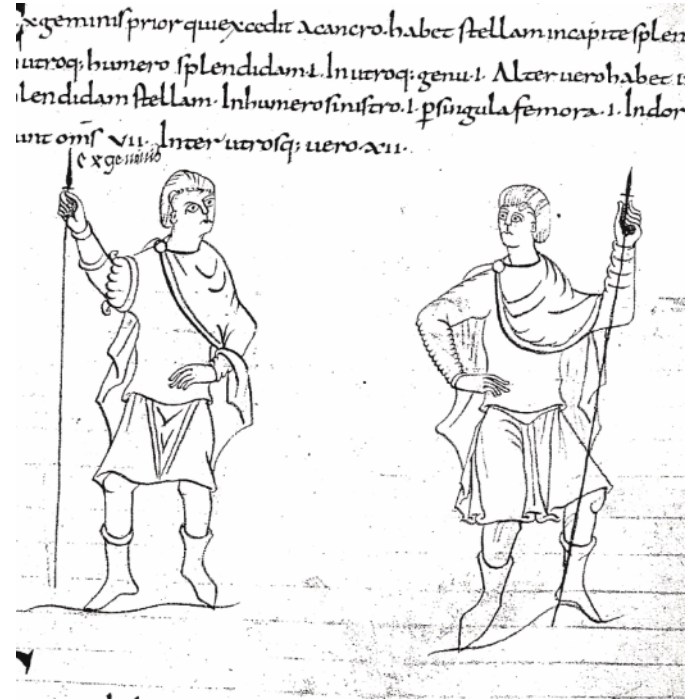 xgeminis prior qui excedit a cancro. habet stellam in capite splen
utroq; humero splendidam .I. In utroq; genu .I. Alter vero habet
lendidam stellam. In humero sinistro .I. p singula femora .I. In dor
unt oms VII. Inter utrosq; uero XII.
ex geminis